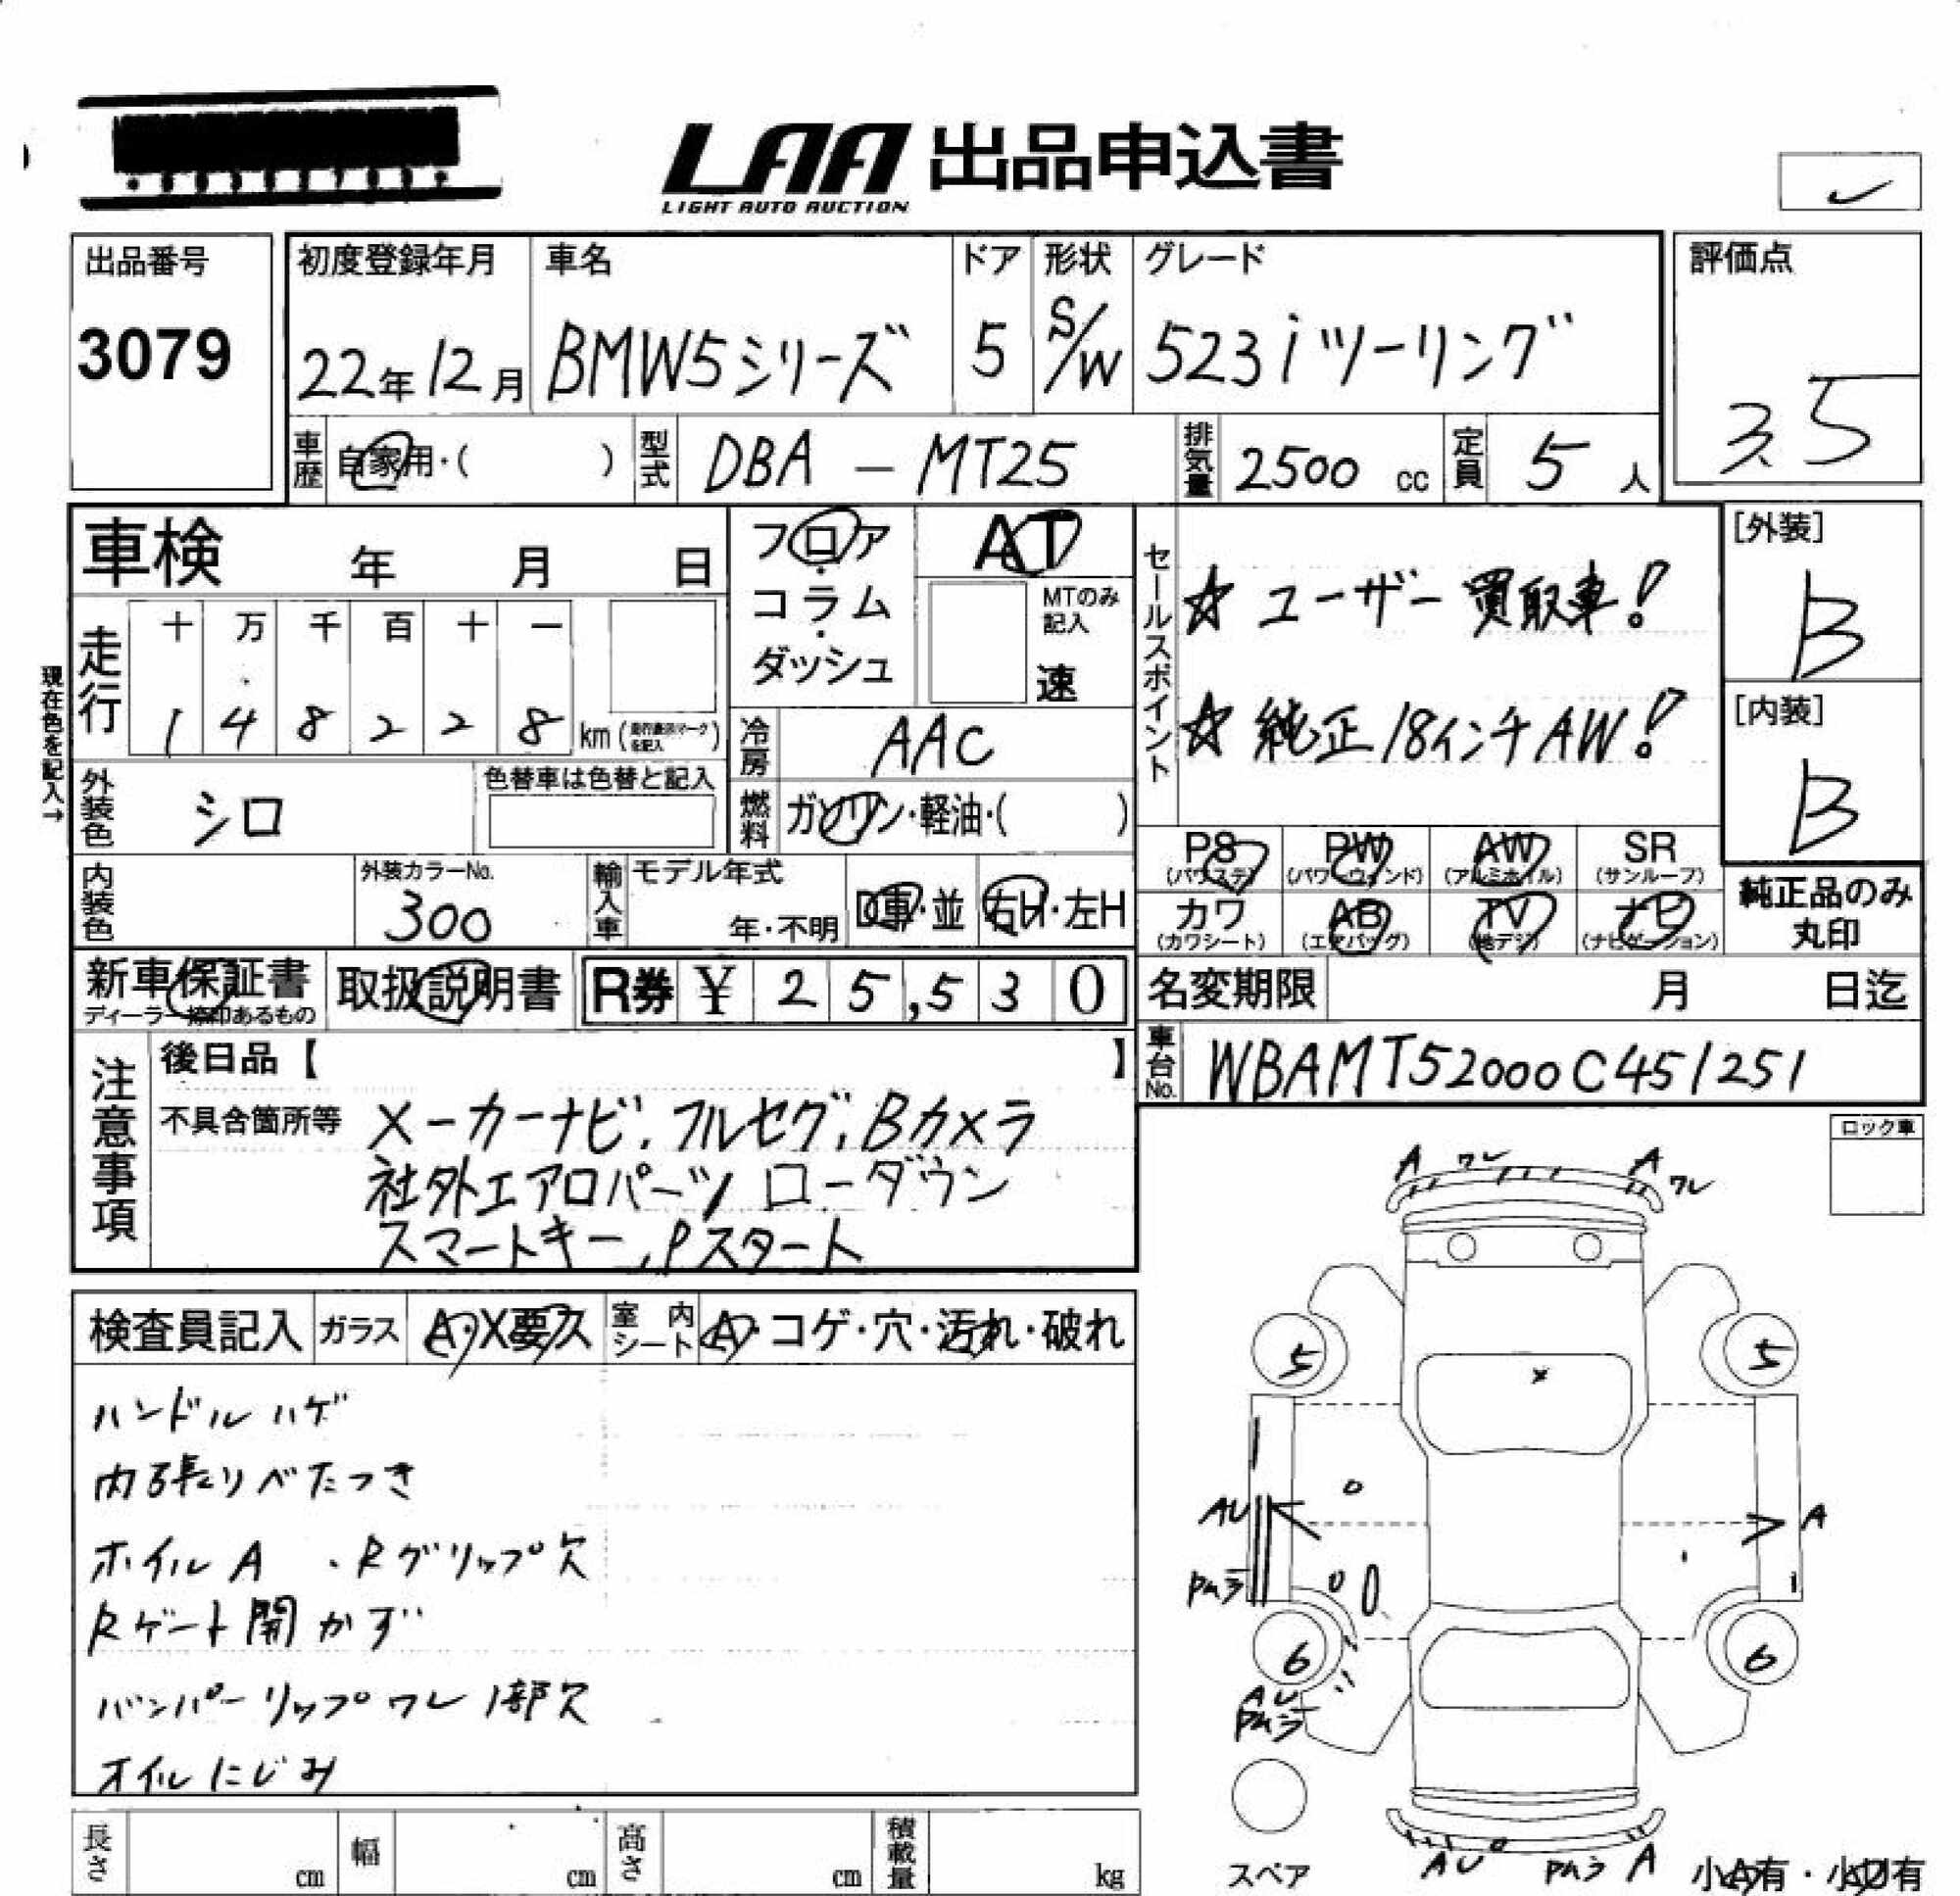 LAA 出品申込書
LIGHT AUTO AUCTION
出品番号
3079
初度登録年月
22年12月
車名
BMW5シリーズ
ドア
5
形状
S/W
グレード
523iツーリング
評価点
3.5
車歴 自家用・( )
型式 DBA - MT25
排気量 2500 cc
定員 5 人
車検 年 月 日
フロア・コラム・ダッシュ
AT
MTのみ記入
速
走行
十 万 千 百 十 一
1 4 8 2 2 8 km
現在色を記入→
冷房 AAC
外装色 シロ
色替車は色替と記入
燃料 ガソリン・軽油・( )
内装色
外装カラーNo.
300
輸入車
モデル年式
年・不明
D車・並
右H・左H
セールスポイント
☆ ユーザー買取車!
☆ 純正18インチAW!
[外装]
B
[内装]
B
PS (パワステ)
PW (パワーウィンド)
AW (アルミホイル)
SR (サンルーフ)
カワ (カワシート)
AB (エアバッグ)
TV (地デジ)
ナビ (ナビゲーション)
純正品のみ丸印
新車保証書
ディーラー捺印あるもの
取扱説明書
R券 ¥ 25,530
名変期限 月 日迄
車台No. WBAMT52000C451251
注意事項
後日品【 】
不具合箇所等 メーカーナビ、フルセグ、Bカメラ
社外エアロパーツ ローダウン
スマートキー、Pスタート
ロック車
検査員記入
ガラス A・X要欠
室内シート A・コゲ・穴・汚れ・破れ
ハンドルハゲ
内張りべたつき
ホイルA ・Rグリップ欠
Rゲート開かず
バンパーリップワレ1部欠
オイルにじみ
A ワレ A ワレ
5 5
x
AU
A
6 6
AU
スペア
AU
A
小A有・小U有
長さ cm
幅 cm
高さ cm
積載量 kg